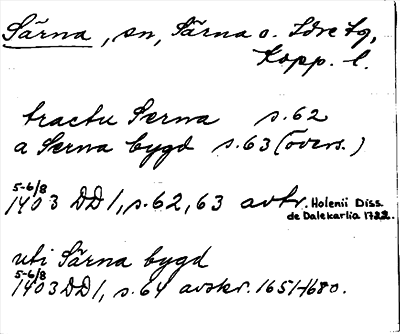 Särna, sn, Särna o. Idre tg,
Kopp. l.
tractu Serna s. 62
a Serna bygd s. 63 (övers.)
5-6/8
1403 DD 1, s. 62, 63 avtr. Holenii Diss.
de Dalekarlia 1722.
uti Särna bygd
5-6/8
1403 DD 1, s. 64 avskr. 1651-1680.